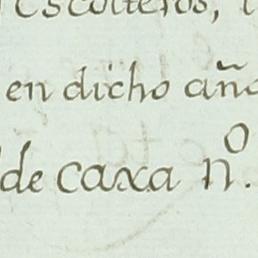 Escolteros,
en dicho año
de caxa nº.